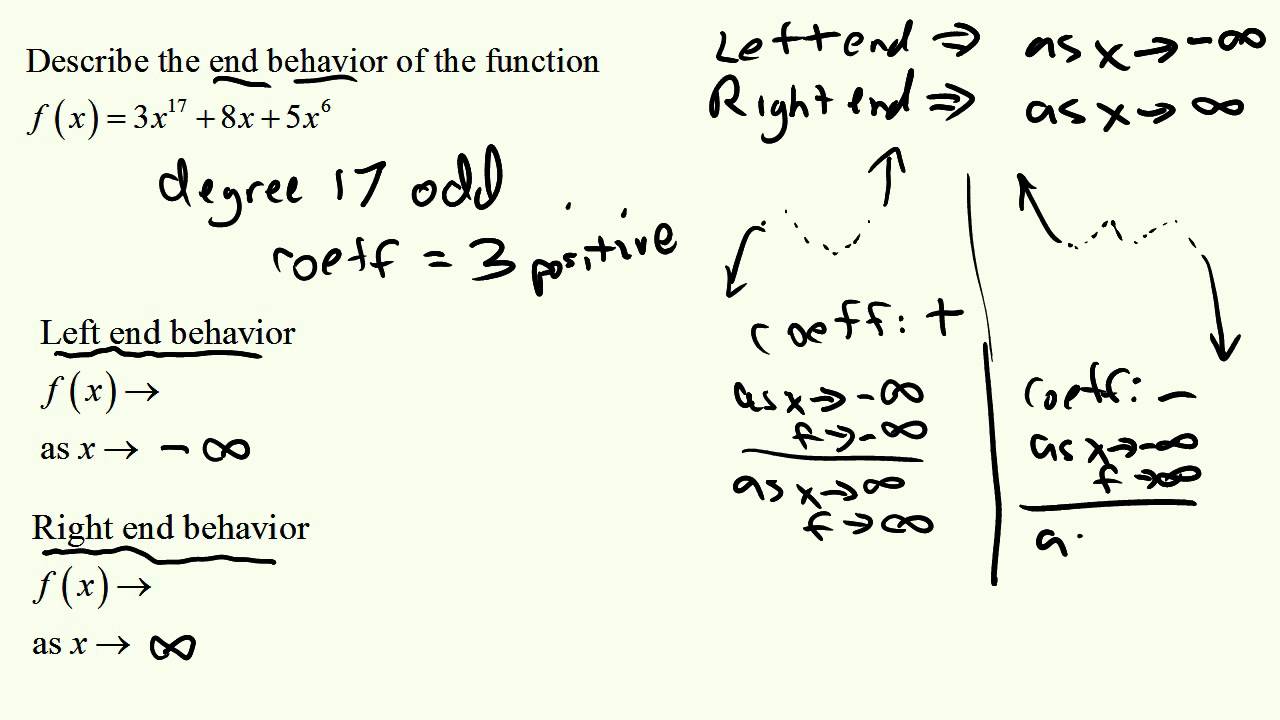 Describe the end behavior of the function
f(x) = 3x¹⁷ + 8x + 5x⁶
degree 17 odd
coeff = 3 positive
Left end behavior
f(x) →
as x → - ∞
Right end behavior
f(x) →
as x → ∞
Left end ⇒ as x → -∞
Right end ⇒ as x → ∞
coeff: +
as x → -∞
f → -∞
as x → ∞
f → ∞
coeff: -
as x → -∞
f → ∞
a